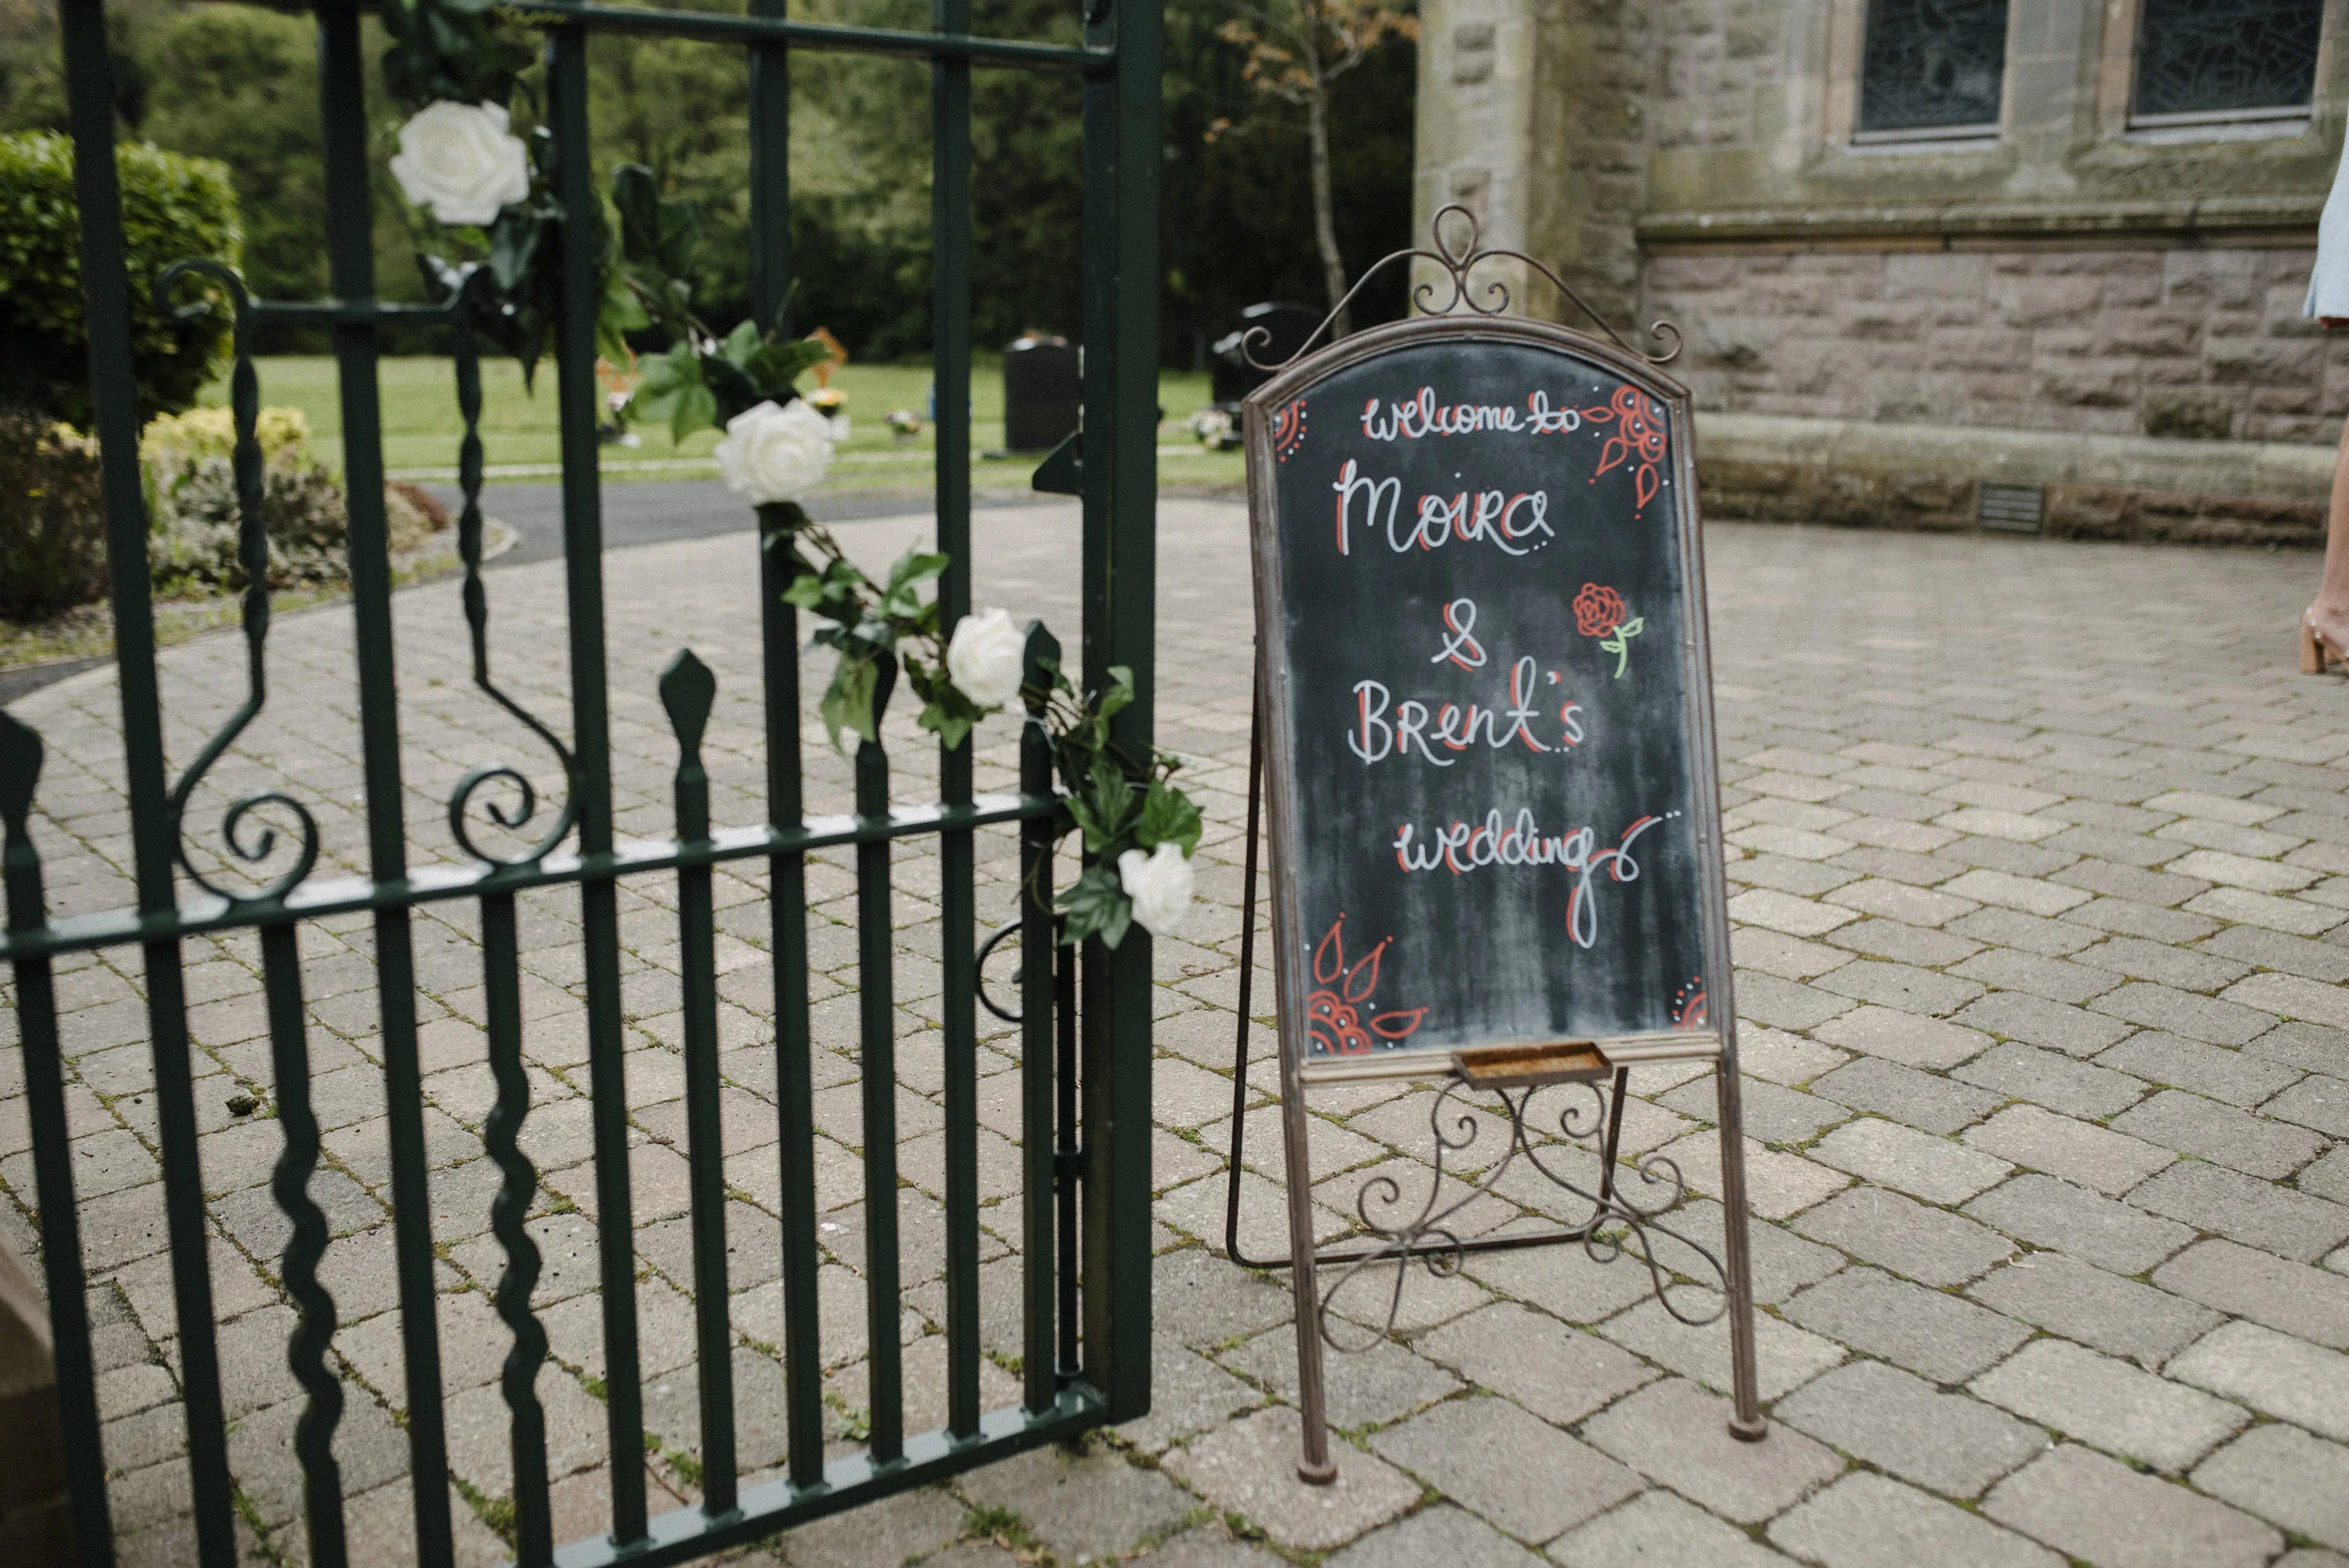 welcome to
Moira
&
Brent's
wedding